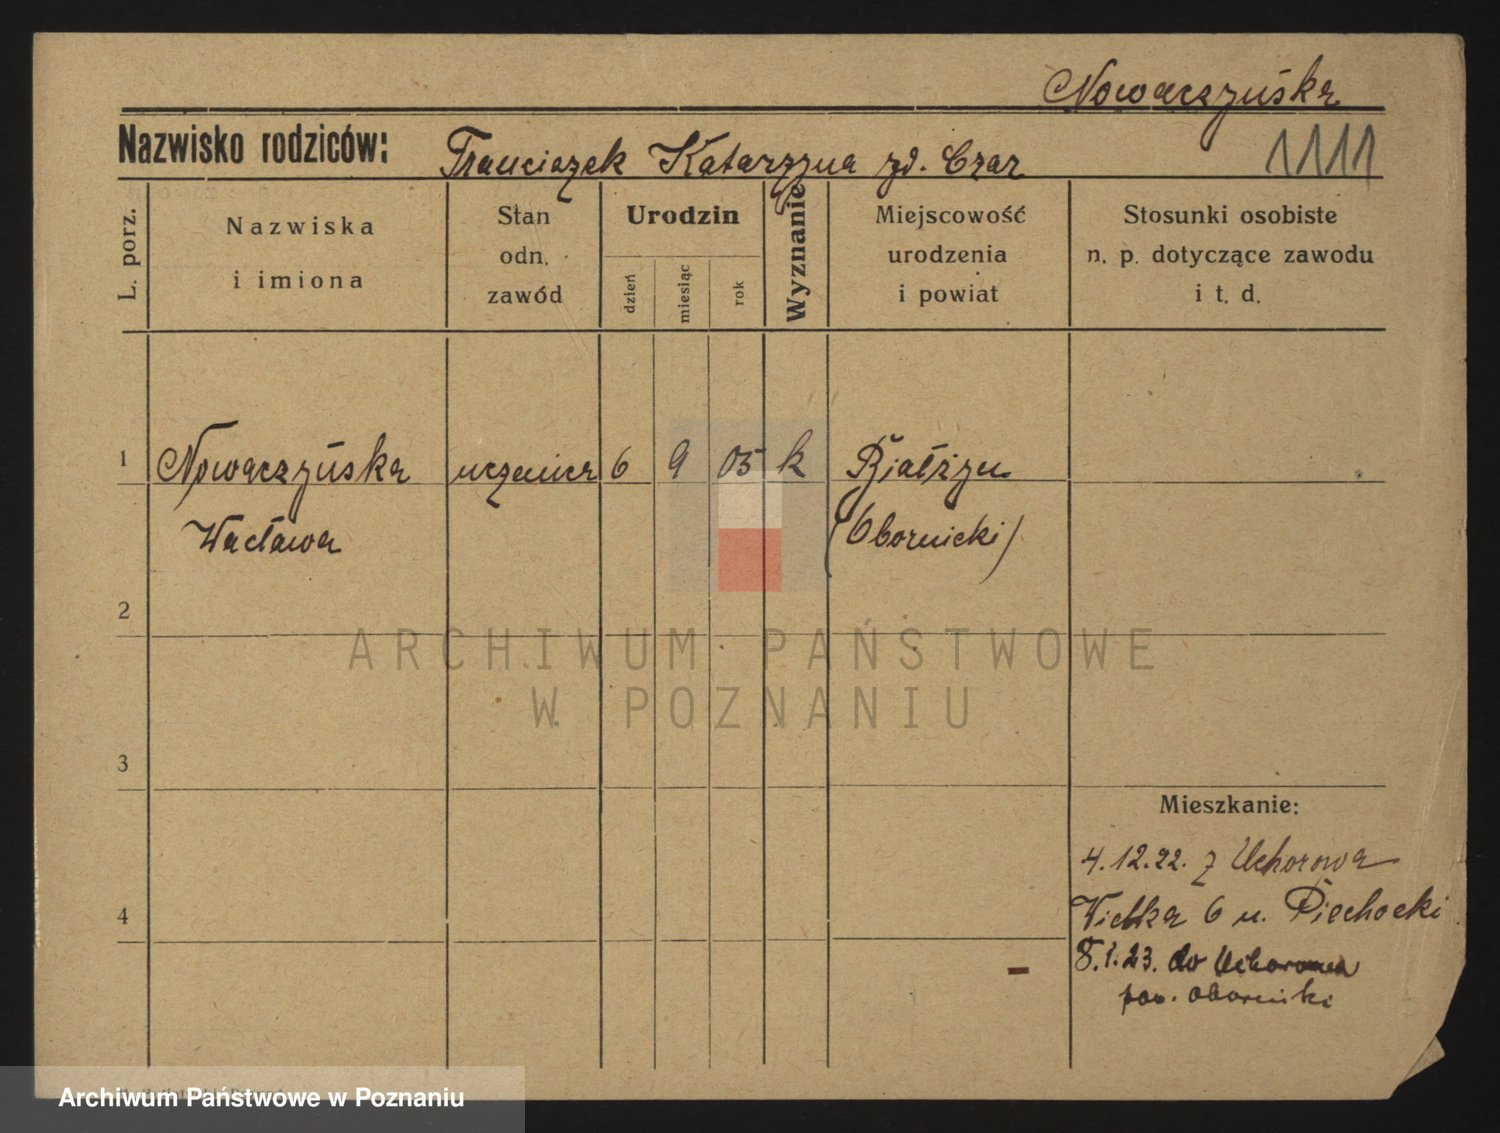 Nowaczyńska
Nazwisko rodziców: Franciszek Katarzyna zd. Czar
1111
L. porz.
Nazwiska
i imiona
Stan
odn.
zawód
Urodzin
dzień
miesiąc
rok
Wyznanie
Miejscowość
urodzenia
i powiat
Stosunki osobiste
n. p. dotyczące zawodu
i t. d.
1 Nowaczyńska uczenica 6 9 05 k Białężyn
Wacława (Obornicki)
2
ARCHIWUM PAŃSTWOWE
W POZNANIU
3
Mieszkanie:
4.12.22. z Uchorowa
4 Wielka 6 u. Piechocki
8.1.23. do Uchorowa
pow. Oborniki
Archiwum Państwowe w Poznaniu